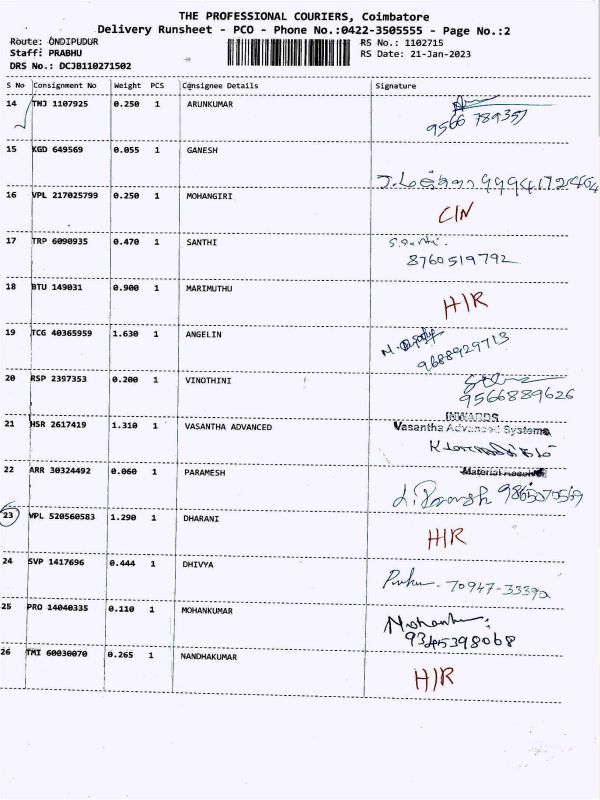 THE PROFESSIONAL COURIERS, Coimbatore
Delivery Runsheet - PCO - Phone No.:0422-3505555 - Page No.:2
Route: ONDIPUDUR
RS No.: 1102715
Staff: PRABHU
RS Date: 21-Jan-2023
DRS No.: DCJB110271502
S No Consignment No Weight PCS Consignee Details Signature
14 TNJ 1107925 0.250 1 ARUNKUMAR
9566 789357
15 KGD 649569 0.055 1 GANESH
16 VPL 217025799 0.250 1 MOHANGIRI
C/N
17 TRP 6090935 0.470 1 SANTHI
8760519792
18 BTU 149031 0.900 1 MARIMUTHU
H/R
19 TCG 40365959 1.630 1 ANGELIN
9688929713
20 RSP 2397353 0.200 1 VINOTHINI
9566889626
21 HSR 2617419 1.310 1 VASANTHA ADVANCED
INWARDS
Vasantha Advanced Systems
22 ARR 30324492 0.060 1 PARAMESH
Material
9865070569
23 VPL 520560583 1.290 1 DHARANI
H/R
24 SVP 1417696 0.444 1 DHIVYA
70947-33390
25 PRO 14040335 0.110 1 MOHANKUMAR
9345398068
26 TMI 60030070 0.265 1 NANDHAKUMAR
H/R